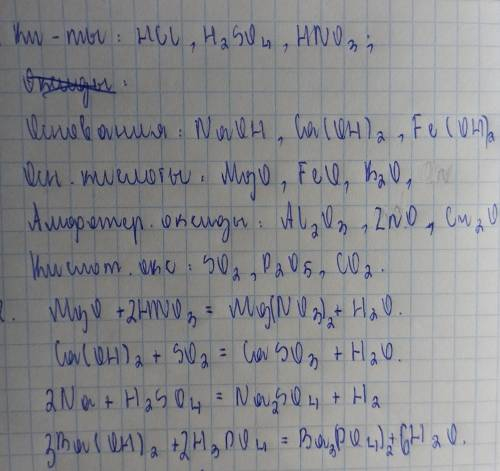 Ки-ты: HCl, H₂SO₄, HNO₃;
Оксиды:
Основания: NaOH, Ca(OH)₂, Fe(OH)₂
Осн. кислоты: MgO, FeO, K₂O,
Амфотер. оксиды: Al₂O₃, ZnO, Cu₂O
Кислот. окс: SO₂, P₂O₅, CO₂.
2. MgO + 2HNO₃ = Mg(NO₃)₂ + H₂O.
Ca(OH)₂ + SO₂ = CaSO₃ + H₂O.
2Na + H₂SO₄ = Na₂SO₄ + H₂
3Ba(OH)₂ + 2H₃PO₄ = Ba₃PO₄)₂ + 6H₂O.